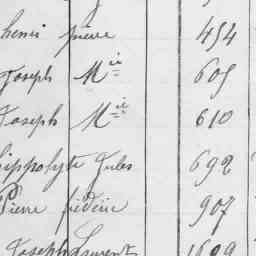 henri pierre 454
Joseph Mie 605
Joseph Mie 610
hippolyte Jules 692
Pierre frédéric 907
Joseph Laurent 1609